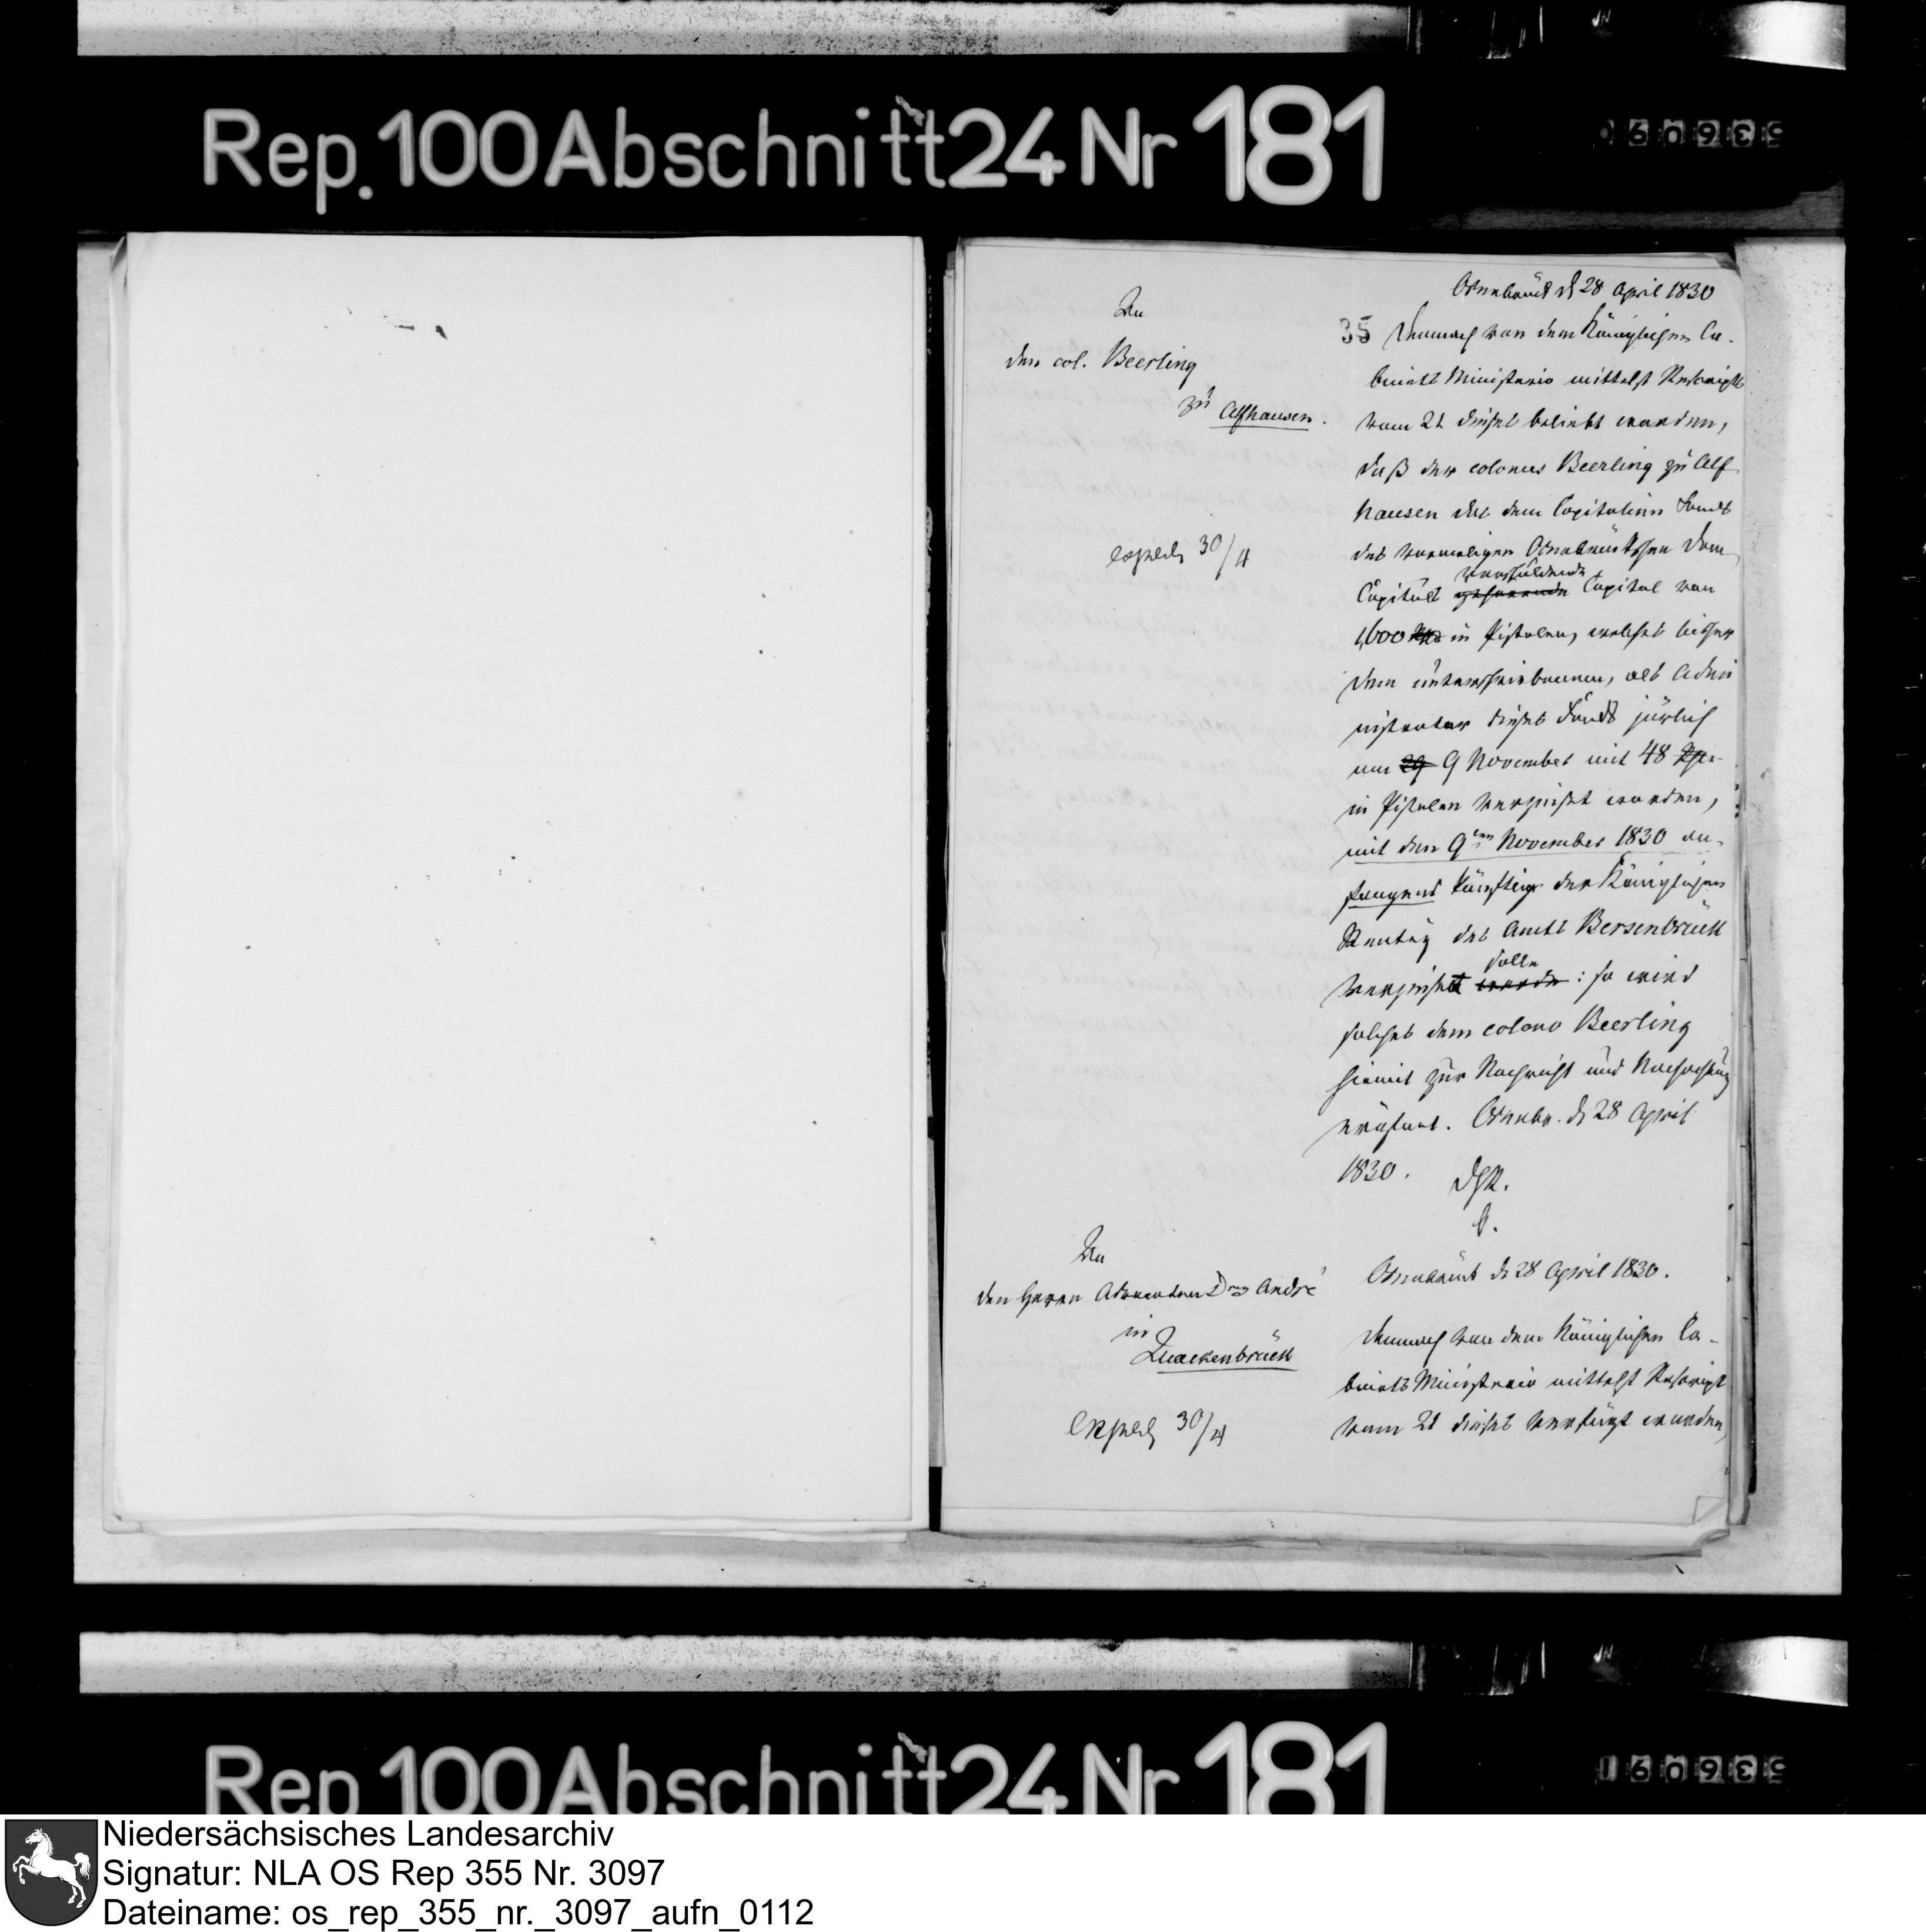 Rep. 100 Abschnitt 24 Nr 181
Osnabrück d 28 April 1830
35
An
den col. Beerling
zu Alfhausen.
exped 30/4
Demnach von dem Königlichen Ca-
binetts Ministerio mittelst Rescripts
vom 21 dieses beliebt worden,
daß der colonus Beerling zu Alf-
hausen das dem Capitalien Fonds
des vormaligen Osnabrückschen Dom
verschuldende
Capituls Capital von
1,600 in Pistolen, welches bisher
dem unterschriebenen, als Admi
nistrator dieses Fonds jährlich
am 29 9 November mit 48
in Pistolen verzinset worden,
mit dem 9ten November 1830 an-
fangend künftig der Königlichen
Rentey des Amts Bersenbrück
solle
verzinset werde: so wird
solches dem colono Beerling
hiemit zur Nachricht und Nachachtung
eröfnet. Osnabr. d 28 April
1830.
An
den Herrn Advocaten Dr André
in
Quackenbrück
exped 30/4
Osnabrück d 28 April 1830.
Demnach von dem Königlichen Ca-
binetts Ministerio mittelst Rescripts
vom 21 dieses verfügt worden,
Rep 100 Abschnitt 24 Nr 181
Niedersächsisches Landesarchiv
Signatur: NLA OS Rep 355 Nr. 3097
Dateiname: os_rep_355_nr._3097_aufn_0112